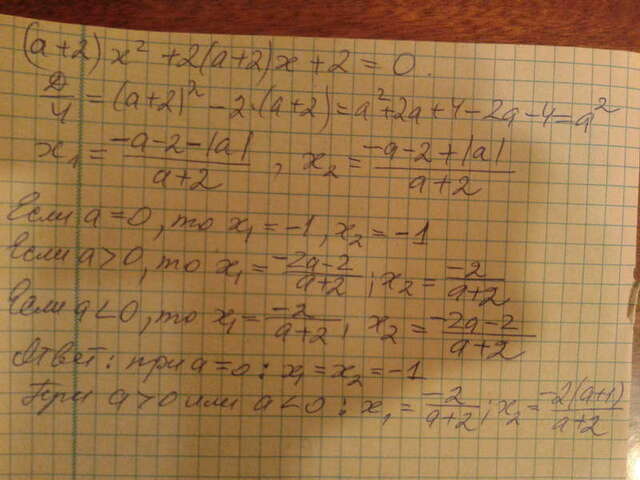 (a+2)x² + 2(a+2)x + 2 = 0.
Д/4 = (a+2)² - 2·(a+2) = a² + 2a + 4 - 2a - 4 = a²
x₁ = (-a-2-|a|)/(a+2) , x₂ = (-a-2+|a|)/(a+2)
Если a=0, то x₁ = -1, x₂ = -1
Если a>0, то x₁ = (-2a-2)/(a+2) ; x₂ = (-2)/(a+2)
Если a<0, то x₁ = (-2)/(a+2) ; x₂ = (-2a-2)/(a+2)
Ответ: при a=0 : x₁ = x₂ = -1
При a>0 или a<0 : x₁ = (-2)/(a+2) ; x₂ = (-2(a+1))/(a+2)